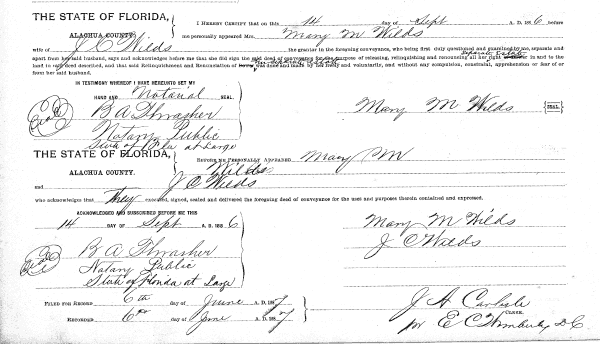 THE STATE OF FLORIDA,
ALACHUA COUNTY.
I HEREBY CERTIFY that on this 14 day of Sept A. D. 1886, before
me personally appeared Mrs. Mary M Wilds
wife of J C Wilds the grantor in the foregoing conveyance, who being first duly questioned and examined by me, separate and
apart from her said husband, says and acknowledges before me that she did sign the said deed of conveyance for the purpose of releasing, relinquishing and renouncing all her right Separate Estate in and to the
land so conveyed and, and that said Relinquishment and Renunciation of was done and made by her freely and voluntarily, and without any compulsion, constraint, apprehension or fear of or
from her said husband.
IN TESTIMONY WHEREOF I HAVE HEREUNTO SET MY
HAND AND Notarial SEAL.
Seal
B A Thrasher
Notary Public
State of Fla at Large
Mary M Wilds SEAL.
THE STATE OF FLORIDA,
ALACHUA COUNTY.
BEFORE ME PERSONALLY APPEARED Mary M
Wilds
and J C Wilds
who acknowledges that They executed, signed, sealed and delivered the foregoing deed of conveyance for the uses and purposes therein contained and expressed.
ACKNOWLEDGED AND SUBSCRIBED BEFORE ME THIS
14 DAY OF Sept A. D. 1886
Seal
B A Thrasher
Notary Public
State of Florida at Large
Mary M Wilds
J C Wilds
FILED FOR RECORD 6th day of June A. D. 1887
RECORDED 6th day of June A. D. 1887
J A Carlisle
CLERK.
pr E C Wimberly D C